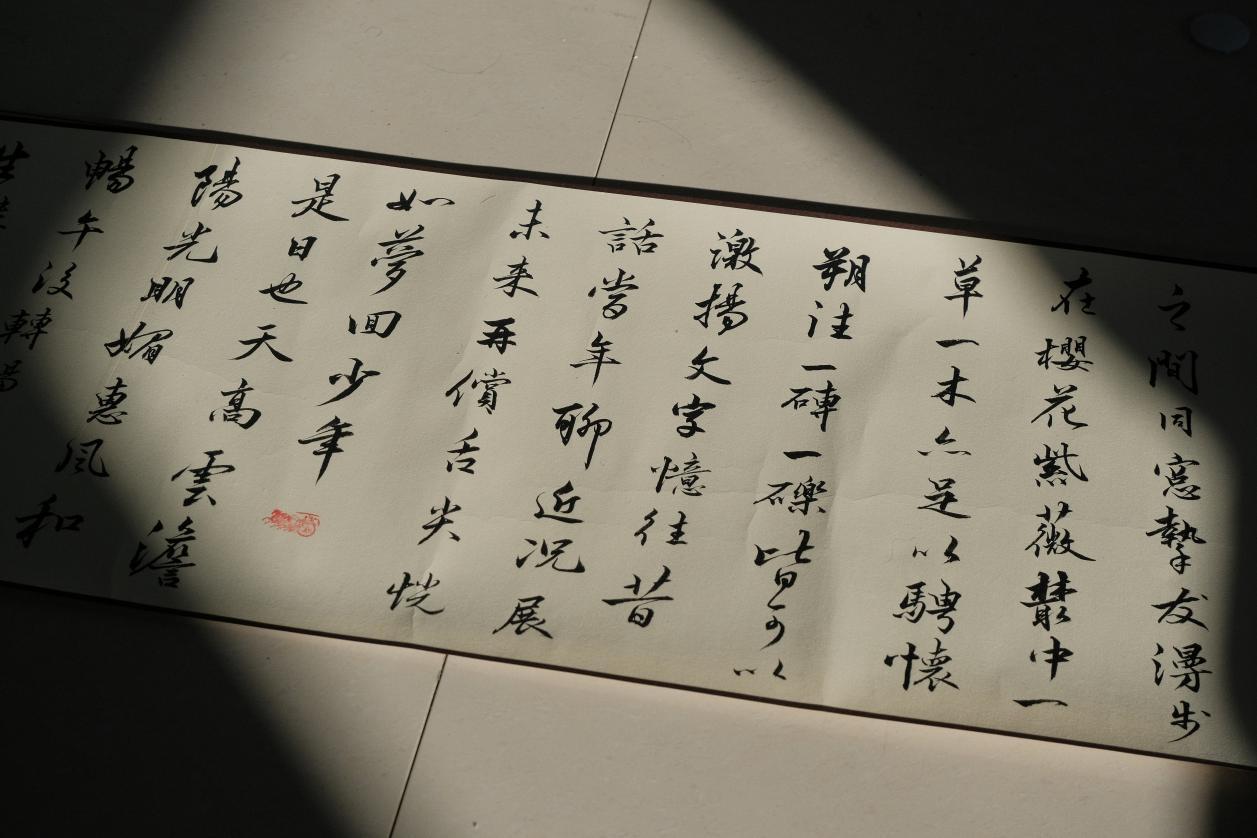 之間同窓摯友漫步
在櫻花紫薇叢中一
草一木亦足以騁懷
朔注一磚一礫皆可以
激揚文字憶往昔
話當年聊近況展
未来再償舌尖恍
如夢回少年
是日也天高雲澹
陽光明媚惠風和
暢午后轉場